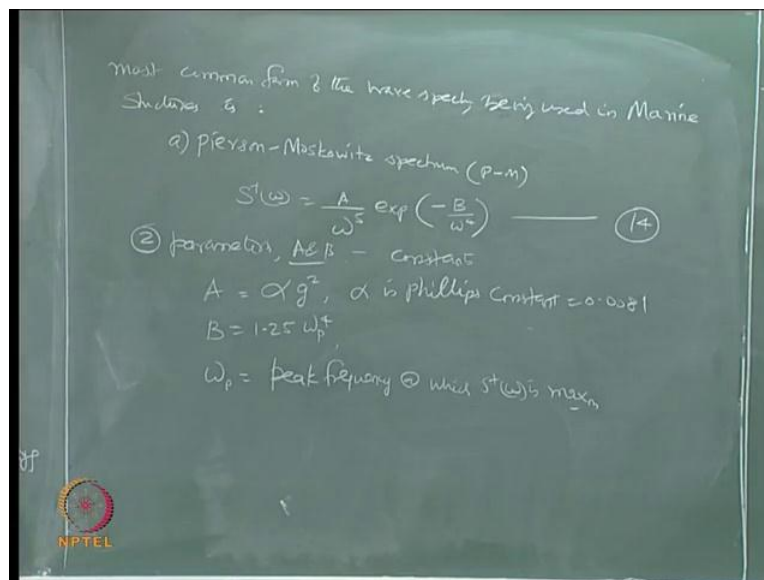 most common form of the wave spectra being used in Marine
Structures is :
a) Pierson-Moskowitz spectrum (P-M)
S⁺(ω) = A/ω⁵ exp (-B/ω⁴) ——— (14)
② parameters, A & B - constants
A = αg², α is phillips constant = 0.0081
B = 1.25 ωp⁴
ωp = peak frequency @ which S⁺(ω) is maxm
NPTEL